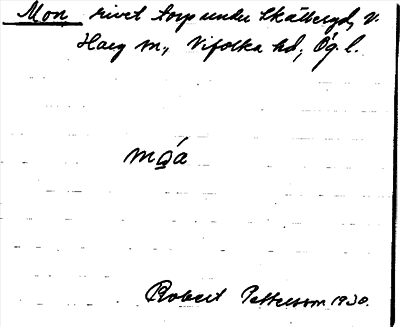 Mon, rivet torp under Skälberga, V.
Harg sn., Vifolka hd., Ög. l.
mó̲a
Robert Pettersson 1930.